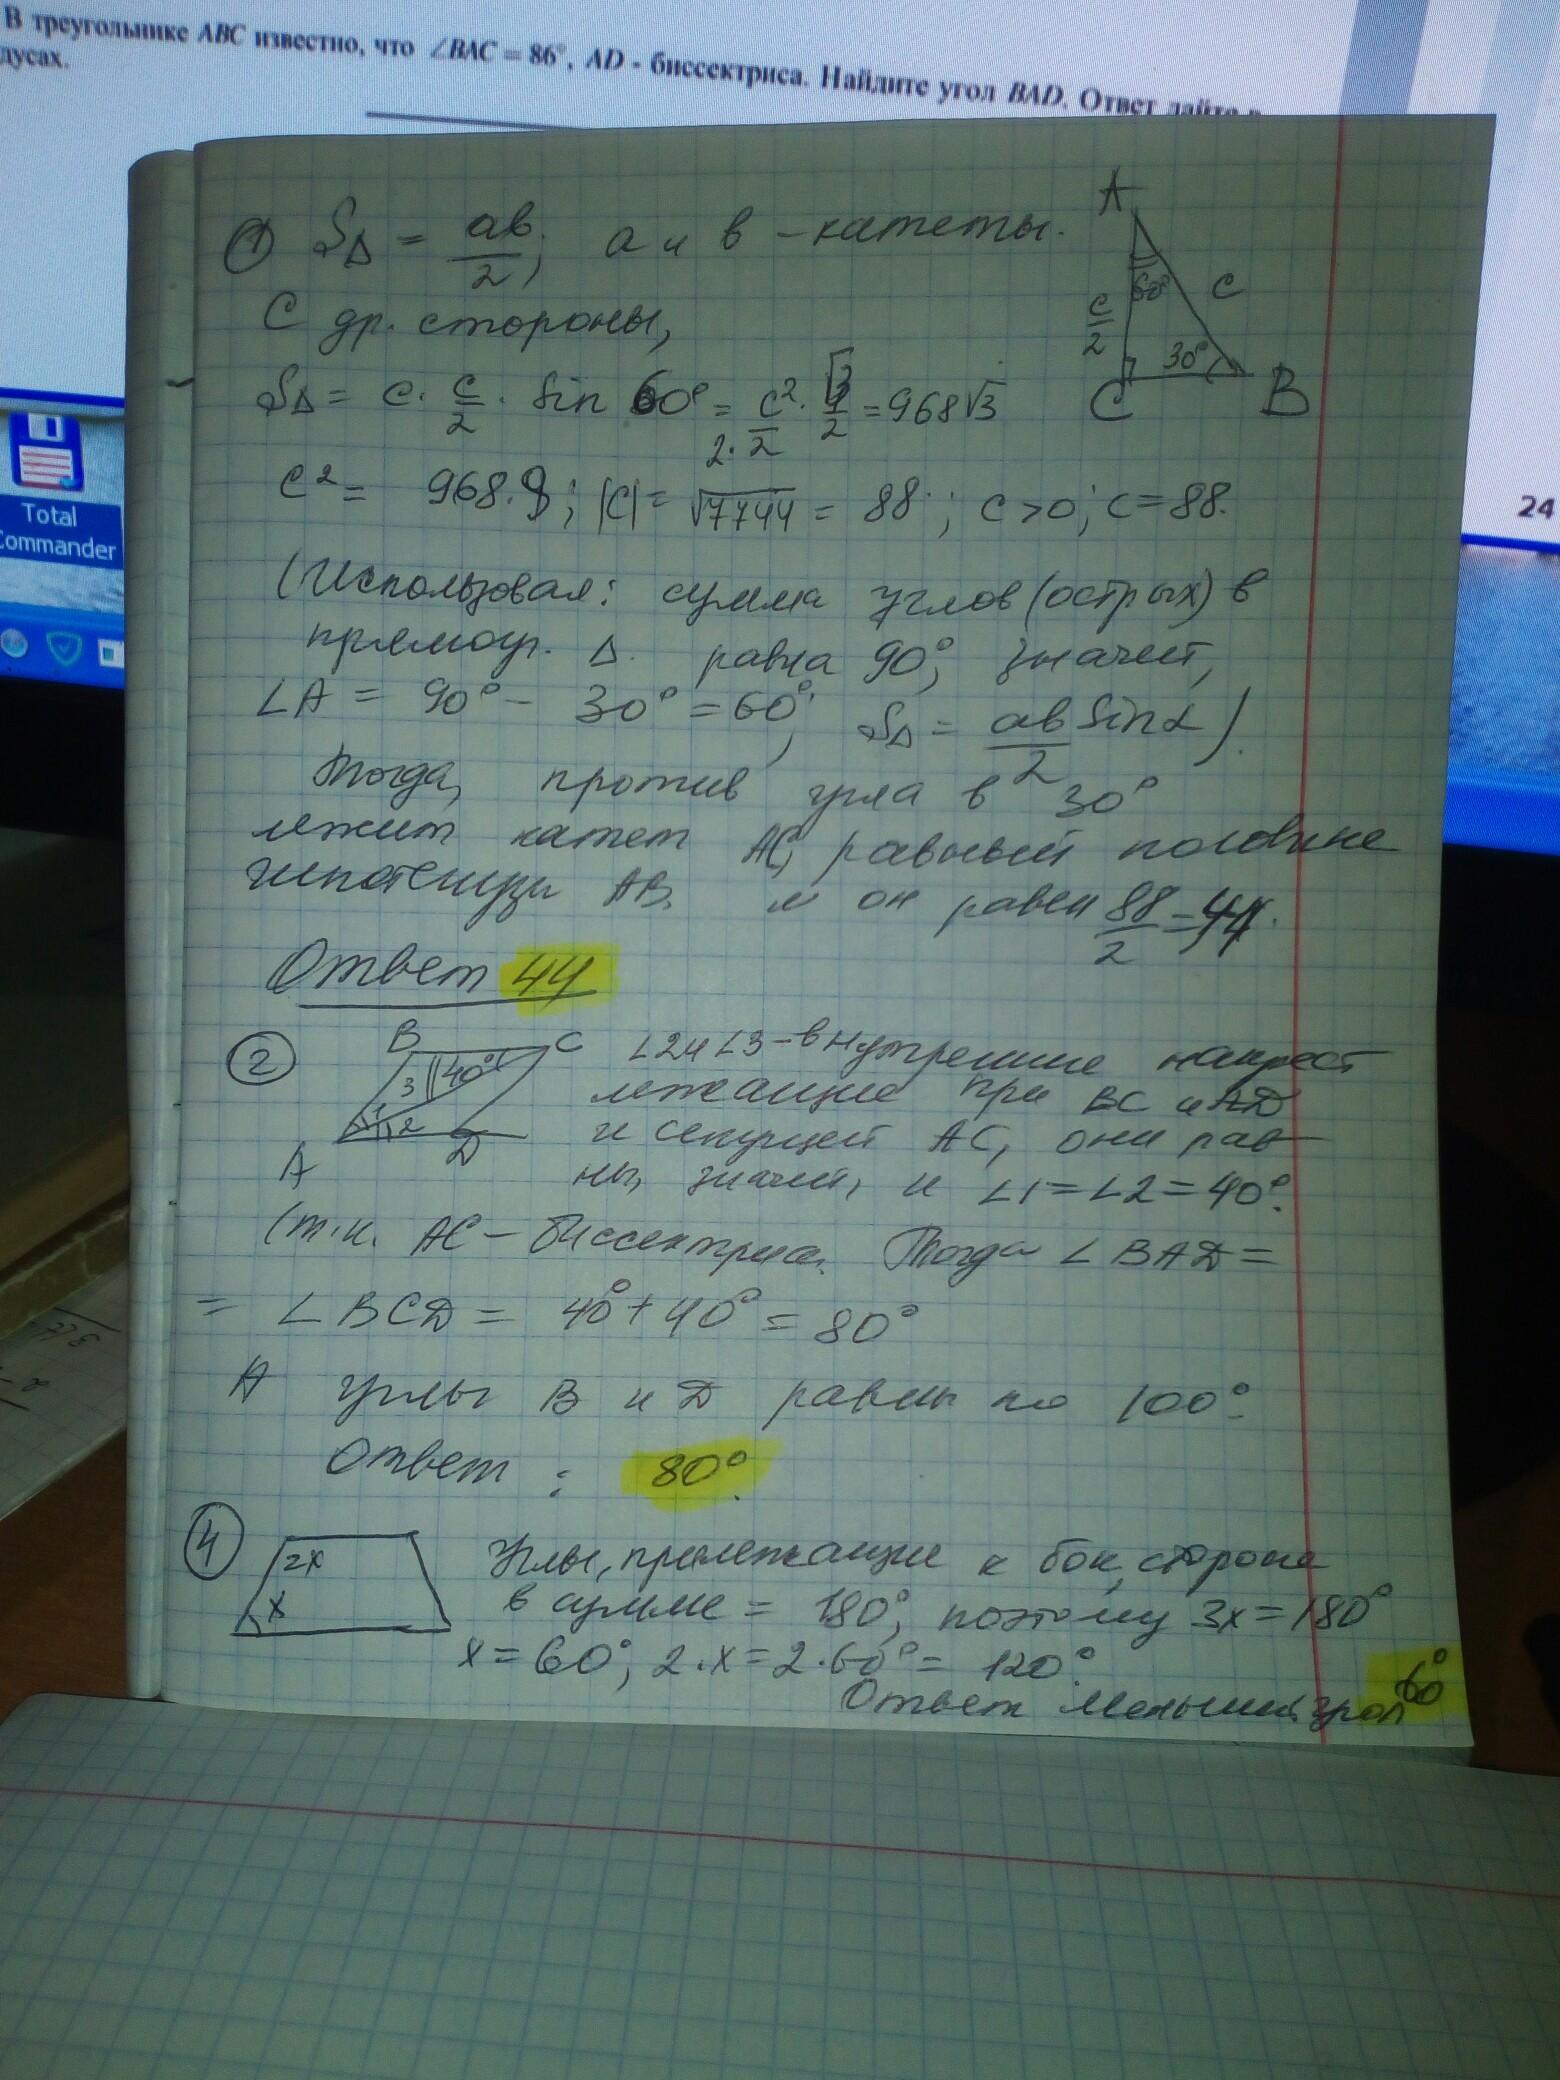 В треугольнике ABC известно, что ∠BAC = 86°, AD - биссектриса. Найдите угол BAD. Ответ дайте в
дусах.
Total
Commander
24
① S∆ = ab/2; a и b - катеты.
С др. стороны,
S∆ = c · c/2 · sin 60° = c²/(2·2) · √3/2 = 968√3
c² = 968·8; |c| = √7744 = 88; c>0; c=88.
A
60°
c
c/2
30°
C
B
(Использовал: сумма углов (острых) в
прямоуг. ∆ равна 90°, значит,
∠A = 90° - 30° = 60°, S∆ = ab/2 sinα).
Тогда, против угла в 30°
лежит катет AC, равный половине
гипотенузы AB, и он равен 88/2 = 44.
Ответ 44
②
B
C
3
40°
1
2
A
D
∠2 и ∠3 - внутренние накрест
лежащие при BC и AD
и секущей AC, они рав-
ны, значит, и ∠1 = ∠2 = 40°.
(т.к. AC - биссектриса. Тогда ∠BAD =
= ∠BCD = 40° + 40° = 80°
А углы B и D равны по 100°.
Ответ: 80°.
④
2x
x
Углы, прилежащие к бок. стороне
в сумме = 180°, поэтому 3x = 180°
x = 60°, 2·x = 2·60° = 120°.
Ответ меньший угол 60°